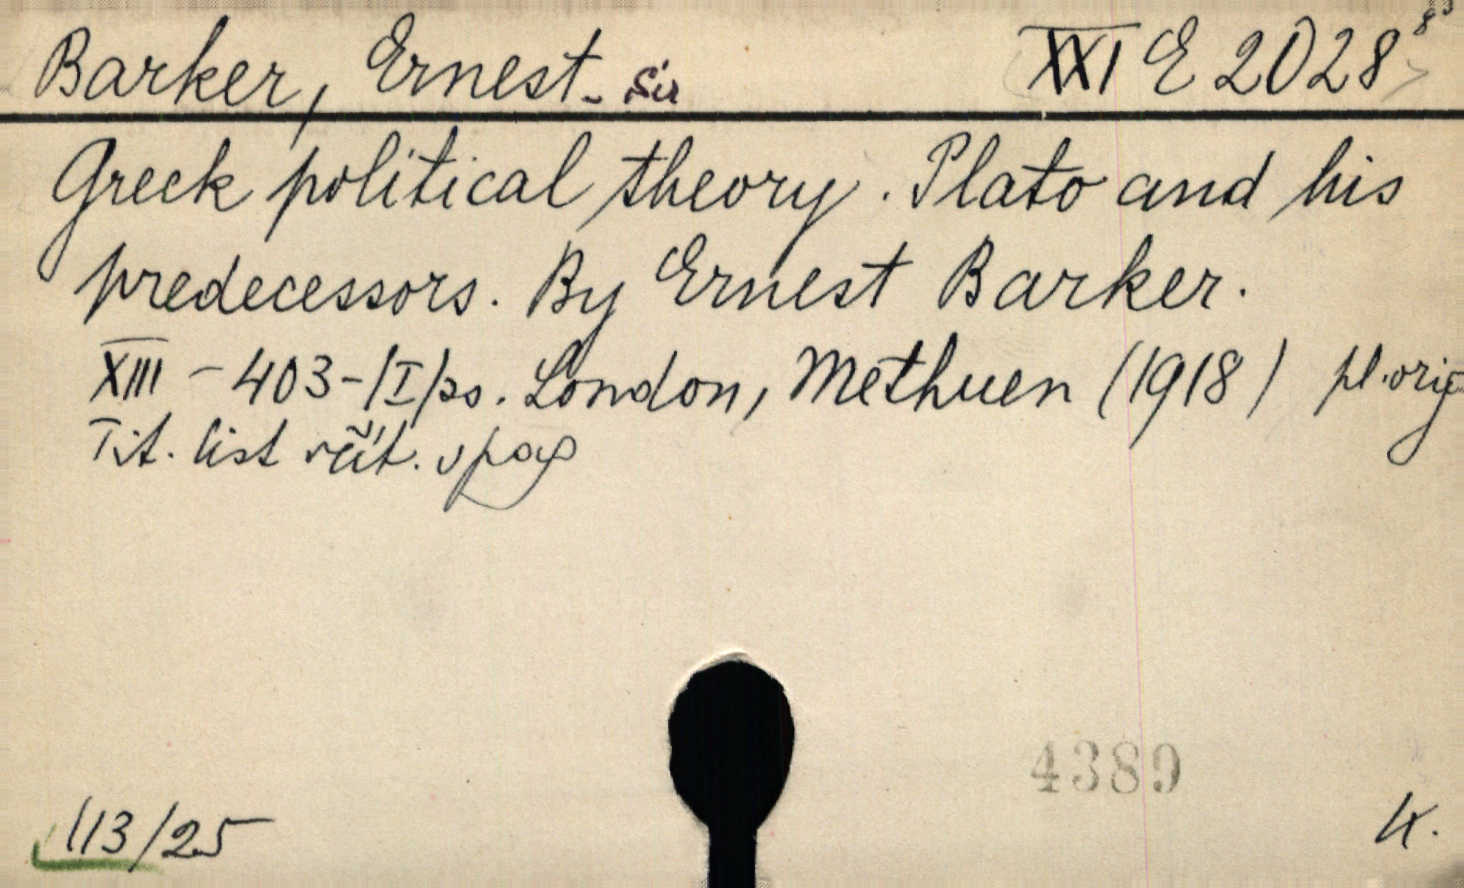 Barker, Ernest. Sir XXI E 2028
Greek political theory. Plato and his
predecessors. By Ernest Barker.
XIII - 403 - /I/ ss. London, Methuen (1918) pl. orig
Tit. list včít. v pag
4389
113/25
K.